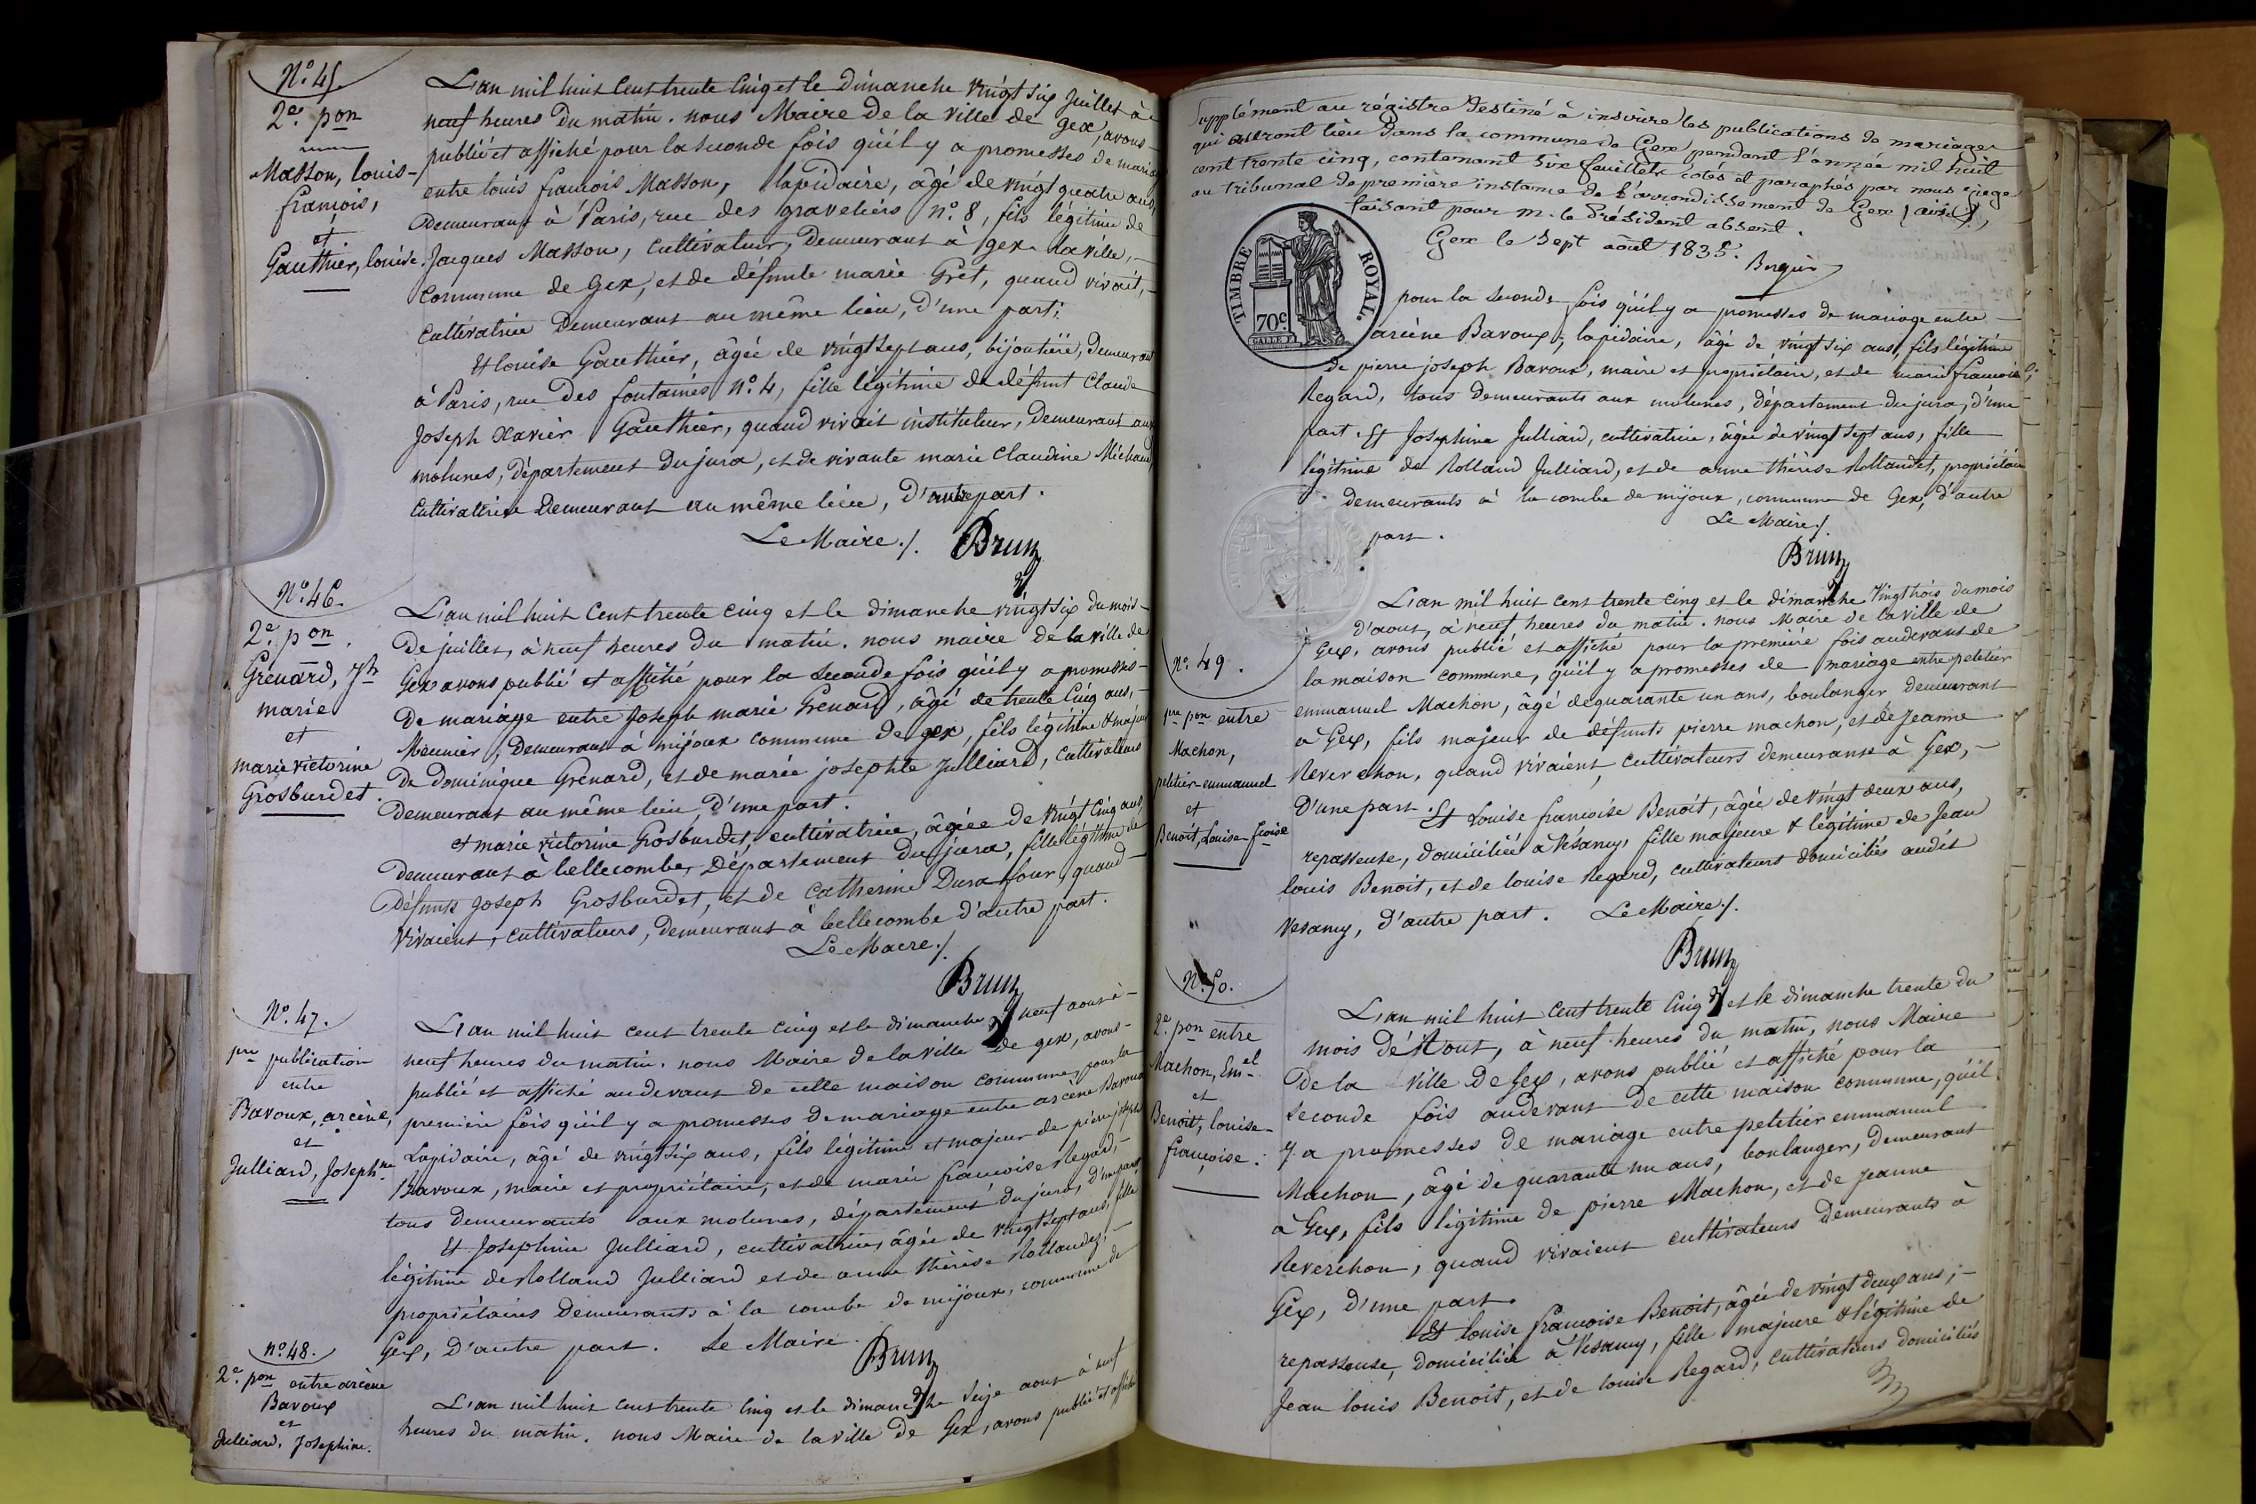 N.° 45.
2.e p.on
Masson, louis-
françois,
et
Gauthier, louise.
L'an mil huit Cent trente Cinq et le Dimanche vingt six Juillet à
neuf heures Du matin. nous Maire de la ville de gex, avons-
publié et affiché pour la seconde fois qu'il y a promesses de mariage
entre louis françois Masson, lapidaire, âgé de vingt quatre ans,
Demeurant à Paris, rue des graveliers N.° 8, fils légitime de
Jacques Masson, Cultivateur, Demeurant à gex la ville, -
Commune de Gex, et de défunte marie Grét, quand vivait, -
Cultivatrice Demeurant au même lieu, D'une part;
Et louise Gauthier, âgée de vingt sept ans, bijoutière, Demeurant
à Paris, rue des fontaines N.° 4, fille légitime de défunt Claude
Joseph Xavier Gauthier, quand vivait instituteur, Demeurant aux
molunes, Département du jura, et de vivante marie Claudine Michaud,
Cultivatrice Demeurant au même lieu, D'autre part.
Le Maire ./. Brun
N.° 46.
2.e p.on.
Grenard, J.h
marie
et
marie victorine
Grosburdet.
L'an mil huit Cent trente Cinq et le dimanche vingt six du mois-
De juillet, à neuf heures Du matin. nous maire de la ville de
Gex avons publié et affiché pour la seconde fois qu'il y a promesses-
De mariage entre Joseph marie Grenard, âgé de trente Cinq ans, -
Meunier, Demeurant à mijoux commune de gex, fils légitime & majeur
De Dominique Grenard, et de marie josephte Julliard, cultivateurs
Demeurant au même lieu, D'une part.
et marie victorine Grosburdet, cultivatrice, âgée de vingt Cinq ans,
Demeurant à bellecombe, Département du jura, fille légitime de
Défunts Joseph Grosburdet, et de Catherine Durafour, quand-
vivaient, cultivateurs, demeurant à bellecombe d'autre part.
Le Maire ./.
Brun
N.° 47.
p.re publication
entre
Bavoux, arcène,
et
Julliard, Joseph.ne
L'an mil huit cent trente cinq et le dimanche neuf aout à-
neuf heures du matin. nous Maire de la ville de gex, avons-
publié et affiché au devant de cette maison commune, pour la
première fois qu'il y a promesses de mariage entre arcène Bavoux
Lapidaire, âgé de vingt six ans, fils légitime et majeur de pierre joseph
Bavoux, maire et propriétaire, et de marie françoise Regard, -
tous demeurants aux molunes, département du jura, d'une part
Et Josephine Julliard, cultivatrice, âgée de vingt sept ans, fille
légitime de Rolland Julliard et de anne thérèse Rollandez, -
propriétaires demeurants à la combe de mijoux, commune de
Gex, D'autre part. Le Maire.
Brun
n.° 48.
2.e p.on entre arcène
Bavoux
et
Julliard, Josephine.
L'an mil huit cent trente cinq et le dimanche seize aout à neuf
heures du matin. nous Maire de la ville de Gex, avons publié et affiché
Supplément au régistre destiné à inscrire les publications de mariages
qui auront lieu dans la commune de Gex pendant l'année mil huit
cent trente cinq, contenant six feuillets cotés et paraphés par nous juge
au tribunal de première instance de l'arrondissement de Gex (ain),
faisant pour m. le Président absent.
Gex le Sept août 1835.
TIMBRE ROYAL.
70c
pour la seconde fois qu'il y a promesses de mariage entre -
arcène Bavoux, lapidaire, âgé de vingt six ans, fils légitime
de pierre joseph Bavoux, maire et propriétaire, et de marie françoise
Regard, tous demeurants aux molunes, département du jura, d'une
part. Et Josephine Julliard, cultivatrice, âgée de vingt sept ans, fille
légitime de Rolland Julliard, et de anne thérèse Rollandet, propriétaires
demeurants à la combe de mijoux, commune de Gex, d'autre
part.
Le Maire ./.
Brun
N.° 49.
p.re p.on entre
Machon,
peletier-emmanuel
et
Benoit, Louise-f.oise
L'an mil huit cent trente cinq et le dimanche vingt trois du mois
d'aout, à neuf heures du matin. nous Maire de la ville de
Gex, avons publié et affiché pour la première fois au devant de
la maison commune, qu'il y a promesses de mariage entre peletier
emmanuel Machon, âgé de quarante un ans, boulanger demeurant
à Gex, fils majeur de défunts pierre machon, et de Jeanne
Reverchon, quand vivaient, cultivateurs demeurants à Gex, -
D'une part. Et Louise françoise Benoit, âgée de vingt deux ans,
repasseuse, domiciliée à Vésancy, fille majeure & légitime de Jean
louis Benoit, et de louise Regard, cultivateurs domiciliés audit
Vesancy, D'autre part. Le Maire ./.
Brun
N.° 50.
2.e p.on entre
Machon, Em.el
et
Benoit, louise-
françoise.
L'an mil huit Cent trente Cinq et le dimanche trente du
mois d'Aout, à neuf heures du matin, nous Maire
De la ville de Gex, avons publié et affiché pour la
seconde fois au devant de cette maison commune, qu'il
y a promesses de mariage entre peletier emmanuel
Machon, âgé de quarante un ans, boulanger, demeurant
à Gex, fils légitime de pierre Machon, et de Jeanne
Reverchon, quand vivaient cultivateurs demeurants à
Gex, D'une part.
Et louise françoise Benoit, âgée de vingt deux ans, -
repasseuse, domiciliée à Vésancy, fille majeure & légitime de
Jean louis Benoit, et de louise Regard, cultivateurs domiciliés